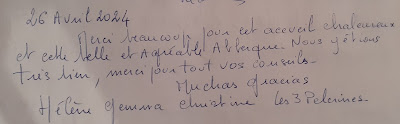 26 Avril 2024
Merci beaucoup pour cet accueil chaleureux
et cette belle et agréable Albergue. Nous y étions
très bien, merci pour tout vos conseils.
Muchas gracias
Hélène Gemma Christine Les 3 Pelerines.